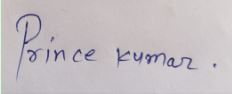 Prince kumar.